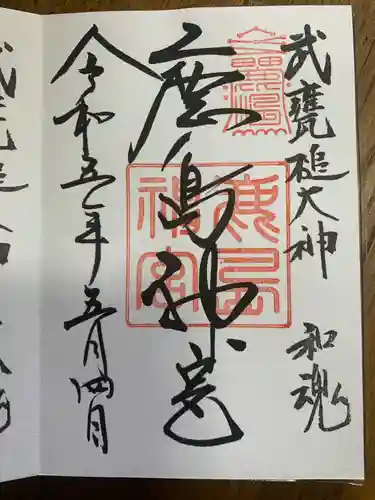 武甕槌大神 和魂
鹿嶋神宮
鹿島神宮
令和五年五月四日